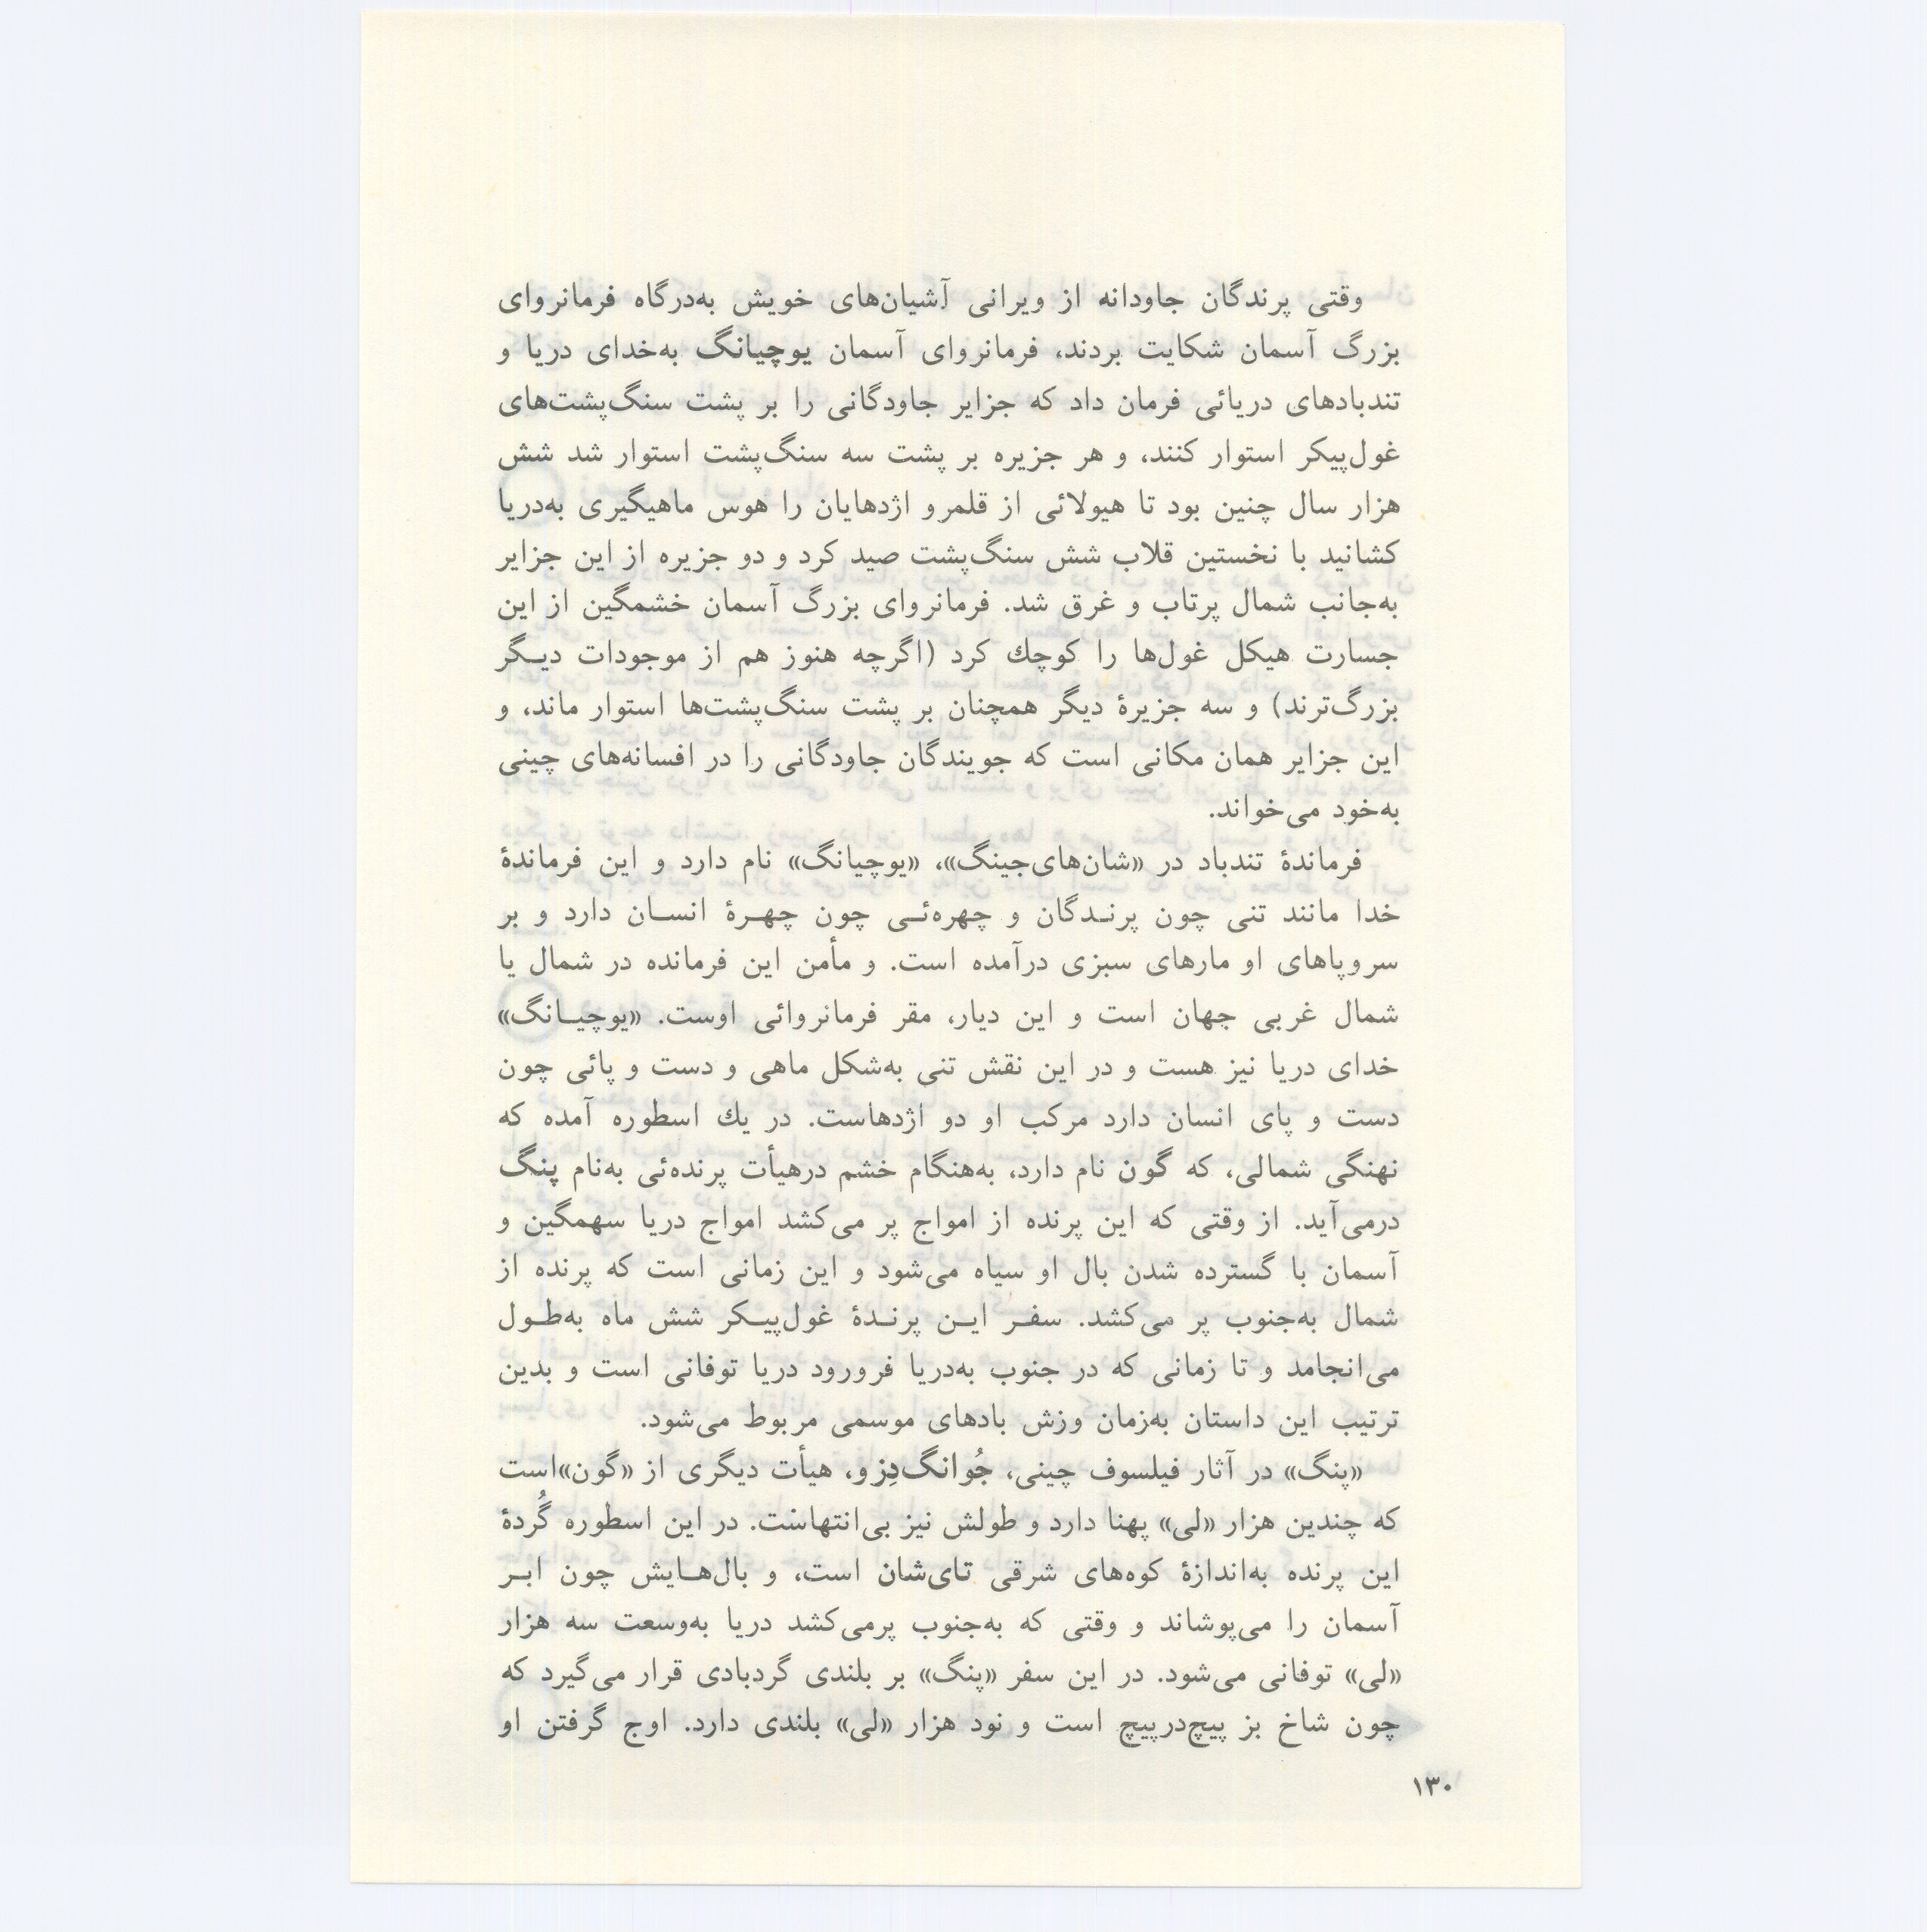 وقتی پرندگان جاودانه از ویرانی آشیان‌های خویش به‌درگاه فرمانروای
بزرگ آسمان شکایت بردند، فرمانروای آسمان یوچیانگ به‌خدای دریا و
تندبادهای دریائی فرمان داد که جزایر جاودگانی را بر پشت سنگ‌پشت‌های
غول‌پیکر استوار کنند، و هر جزیره بر پشت سه سنگ‌پشت استوار شد شش
هزار سال چنین بود تا هیولائی از قلمرو اژدهایان را هوس ماهیگیری به‌دریا
کشانید با نخستین قلاب شش سنگ‌پشت صید کرد و دو جزیره از این جزایر
به‌جانب شمال پرتاب و غرق شد. فرمانروای بزرگ آسمان خشمگین از این
جسارت هیکل غول‌ها را کوچك کرد (اگرچه هنوز هم از موجودات دیـگر
بزرگ‌ترند) و سه جزیرهٔ دیگر همچنان بر پشت سنگ‌پشت‌ها استوار ماند، و
این جزایر همان مکانی است که جویندگان جاودگانی را در افسانه‌های چینی
به‌خود می‌خواند.
فرماندهٔ تندباد در «شان‌های‌جینگ»، «یوچیانگ» نام دارد و این فرماندهٔ
خدا مانند تنی چون پرنـدگان و چهره‌ئـی چون چهـرهٔ انسـان دارد و بر
سروپاهای او مارهای سبزی درآمده است. و مأمن این فرمانده در شمال یا
شمال غربی جهان است و این دیار، مقر فرمانروائی اوست. «یوچیـانگ»
خدای دریا نیز هست و در این نقش تنی به‌شکل ماهی و دست و پائی چون
دست و پای انسان دارد مرکب او دو اژدهاست. در یك اسطوره آمده که
نهنگی شمالی، که گون نام دارد، به‌هنگام خشم درهیأت پرنده‌ئی به‌نام پنگ
درمی‌آید. از وقتی که این پرنده از امواج پر می‌کشد امواج دریا سهمگین و
آسمان با گسترده شدن بال او سیاه می‌شود و این زمانی است که پرنده از
شمال به‌جنوب پر می‌کشد. سفـر ایـن پرنـدهٔ غول‌پیـکر شش ماه به‌طـول
می‌انجامد و تا زمانی که در جنوب به‌دریا فرورود دریا توفانی است و بدین
ترتیب این داستان به‌زمان وزش بادهای موسمی مربوط می‌شود.
«پنگ» در آثار فیلسوف چینی، جُوانگ‌دِزو، هیأت دیگری از «گون»است
که چندین هزار «لی» پهنا دارد و طولش نیز بی‌انتهاست. در این اسطوره گُردهٔ
این پرنده به‌اندازهٔ کوه‌های شرقی تای‌شان است، و بال‌هـایش چون ابـر
آسمان را می‌پوشاند و وقتی که به‌جنوب پرمی‌کشد دریا به‌وسعت سه هزار
«لی» توفانی می‌شود. در این سفر «پنگ» بر بلندی گردبادی قرار می‌گیرد که
چون شاخ بز پیچ‌درپیچ است و نود هزار «لی» بلندی دارد. اوج گرفتن او
۱۳۰